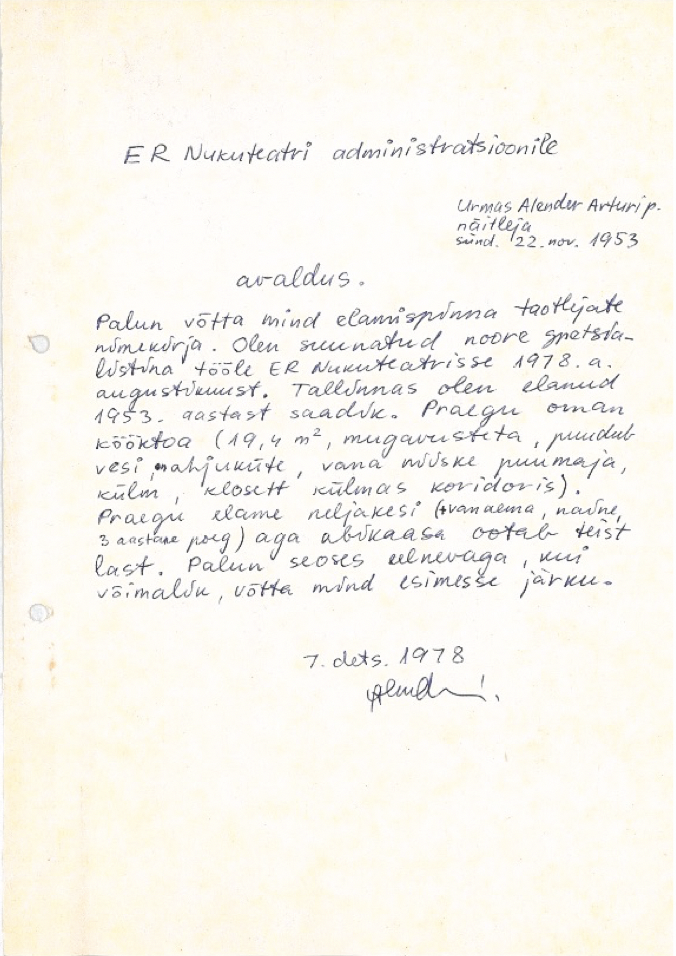 ER Nukuteatri administratsioonile
Urmas Alender Arturi p.
näitleja
sünd. 22. nov. 1953
avaldus.
Palun võtta mind elamispinna taotlejate
nimekirja. Olen suunatud noore spetsia-
listina tööle ER Nukuteatrisse 1978. a.
augustikuust. Tallinnas olen elanud
1953. aastast saadik. Praegu oman
kööktoa (19,4 m², mugavusteta, puudub
vesi, ahjuküte, vana niiske puumaja,
külm, klosett külmas koridoris).
Praegu elame neljakesi (+vanaema, naine,
3 aastane poeg) aga abikaasa ootab teist
last. Palun seoses eelnevaga, kui
võimalik, võtta mind esimesse järku.
7. dets. 1978